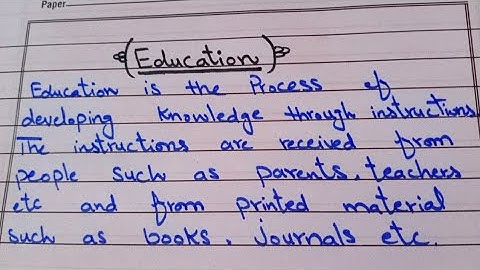 Paper
(Education)
Education is the Process of
developing Knowledge through instructions
The instructions are received from
people such as parents, teachers
etc and from printed material
such as books, journals etc.